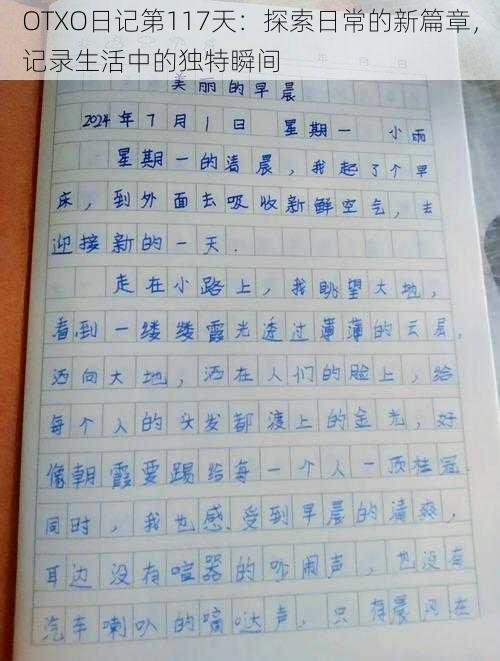 OTXO日记第117天：探索日常的新篇章，
记录生活中的独特瞬间
年 月 日
美丽的早晨
2024年7月1日 星期一 小雨
星期一的清晨，我起了个早
床，到外面去吸收新鲜空气，去
迎接新的一天.
走在小路上，我眺望大地，
看到一缕缕霞光透过薄薄的云层，
洒向大地，洒在人们的脸上，给
每个人的头发都渡上的金光，好
像朝霞要踢给每一个人一顶桂冠.
同时，我也感受到早晨的清爽，
耳边没有喧器的吵闹声，也没有
汽车喇叭的嘀哒声，只有晨风在